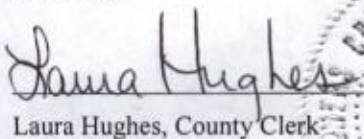 Laura Hughes
Laura Hughes, County Clerk